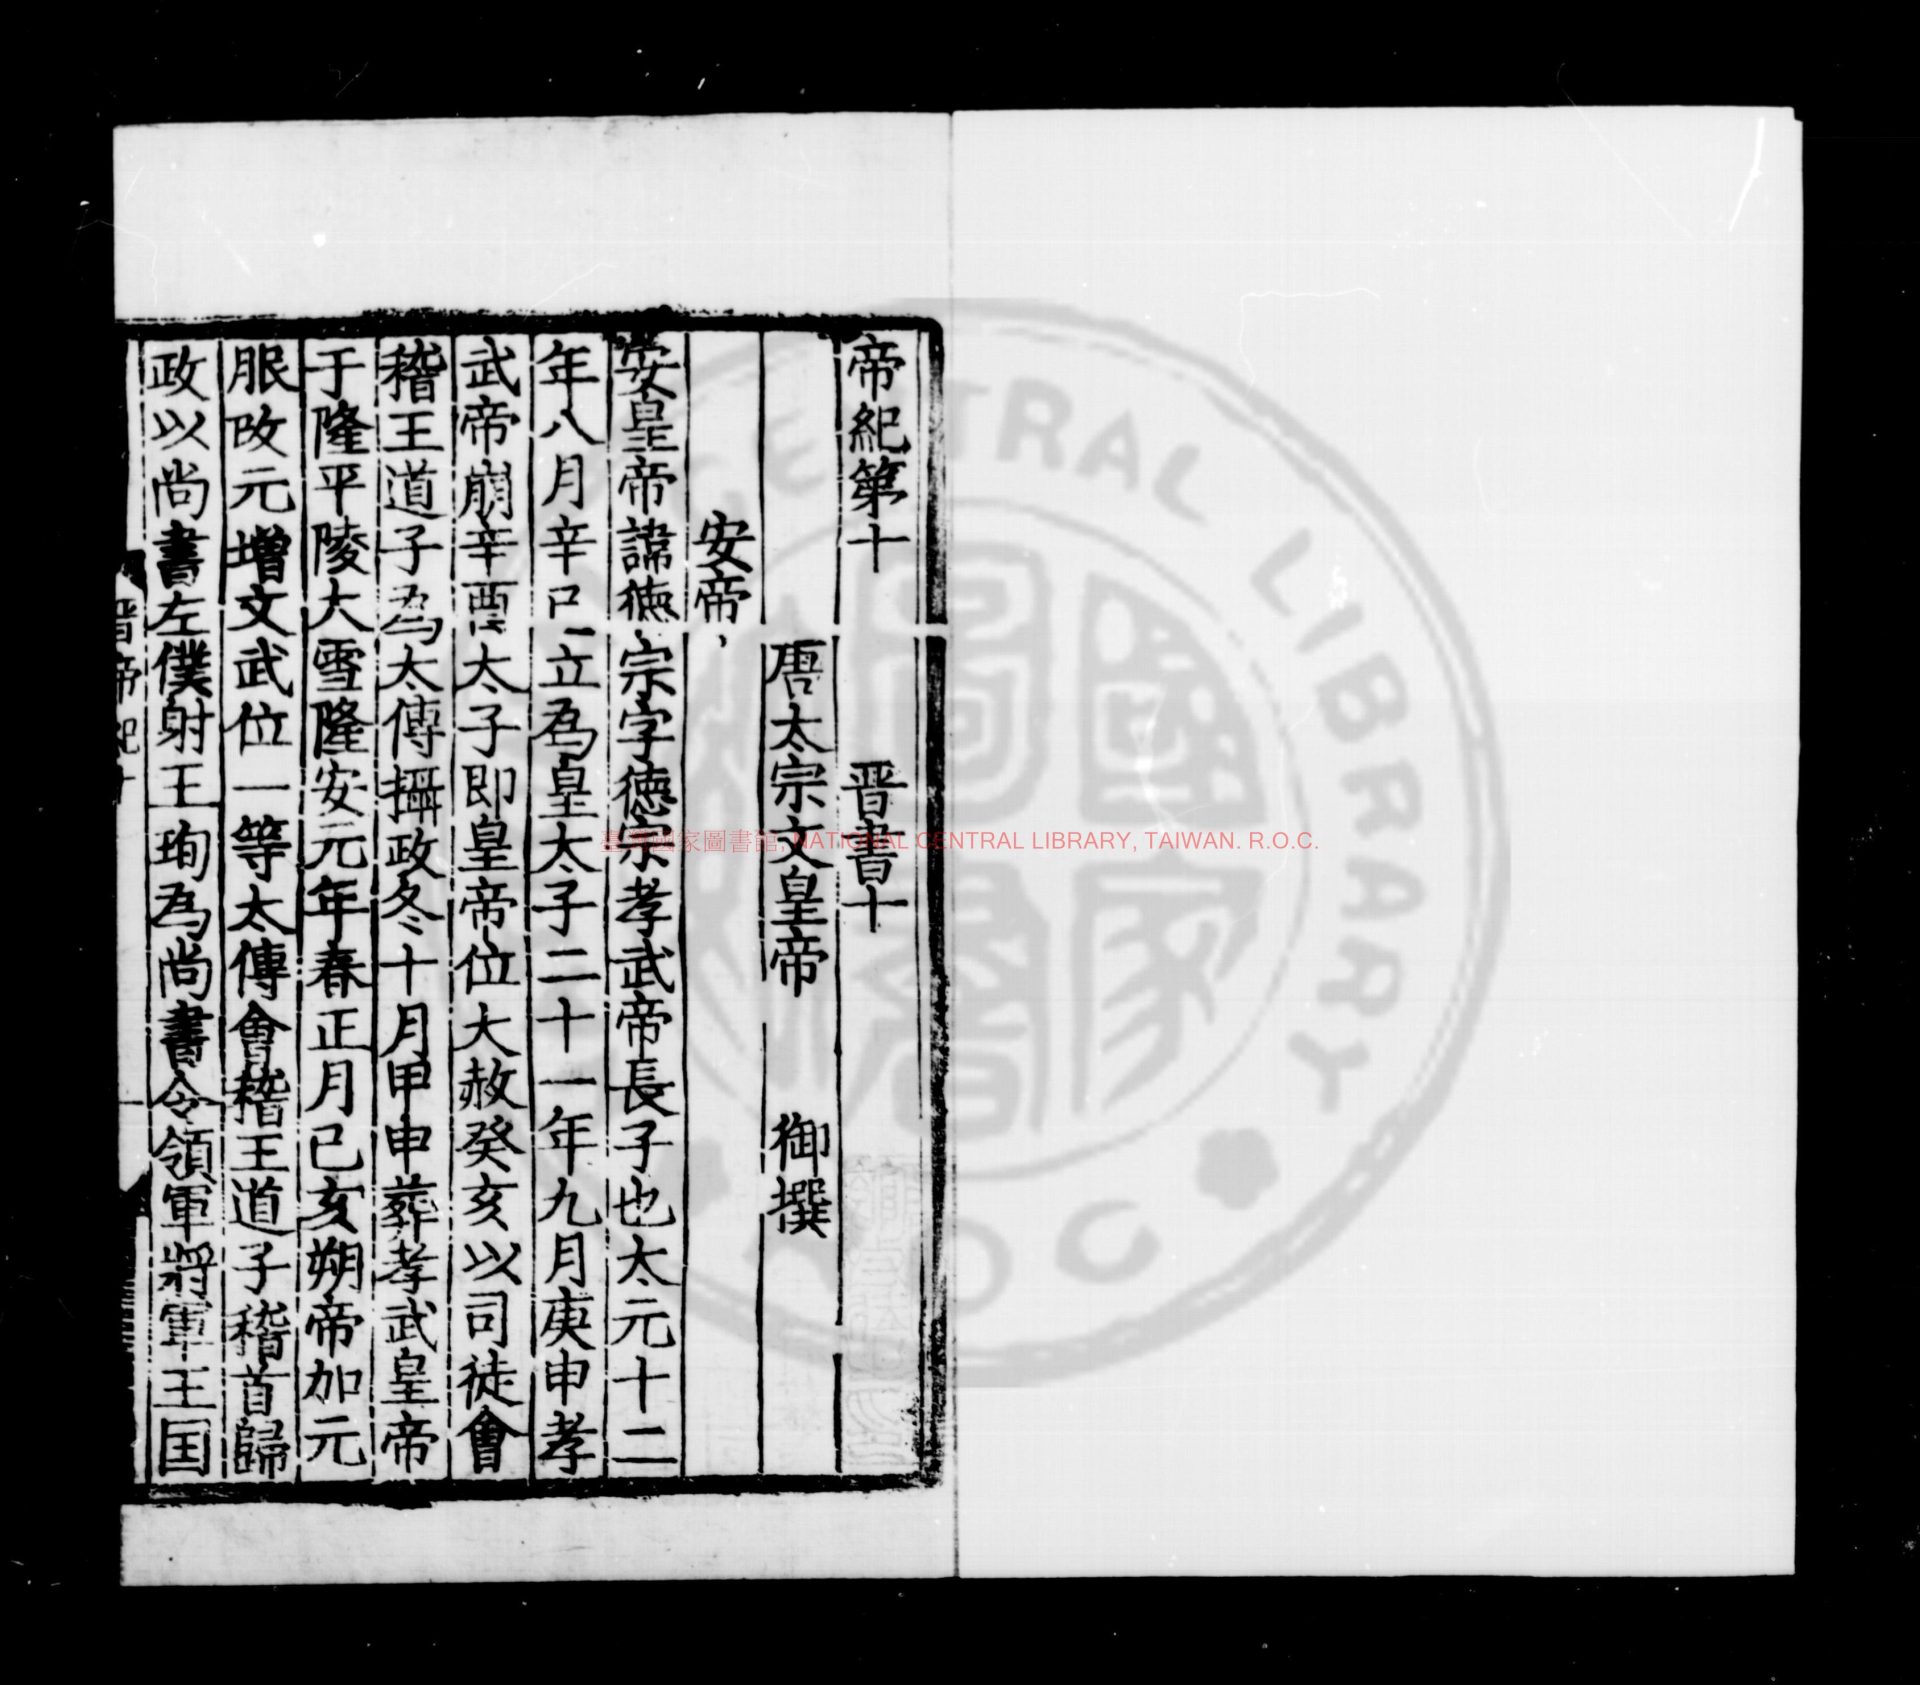 帝紀第十　　晋書十
唐太宗文皇帝　御撰
安帝
安皇帝諱德宗字德宗孝武帝長子也太元十二
年八月辛巳立爲皇太子二十一年九月庚申孝
武帝崩辛酉太子即皇帝位大赦癸亥以司徒會
稽王道子爲太傅攝政冬十月甲申葬孝武皇帝
于隆平陵大雪隆安元年春正月己亥朔帝加元
服改元增文武位一等太傅會稽王道子稽首歸
政以尚書左僕射王珣爲尚書令領軍將軍王国
晋帝紀十
臺灣國家圖書館, NATIONAL CENTRAL LIBRARY, TAIWAN. R.O.C.